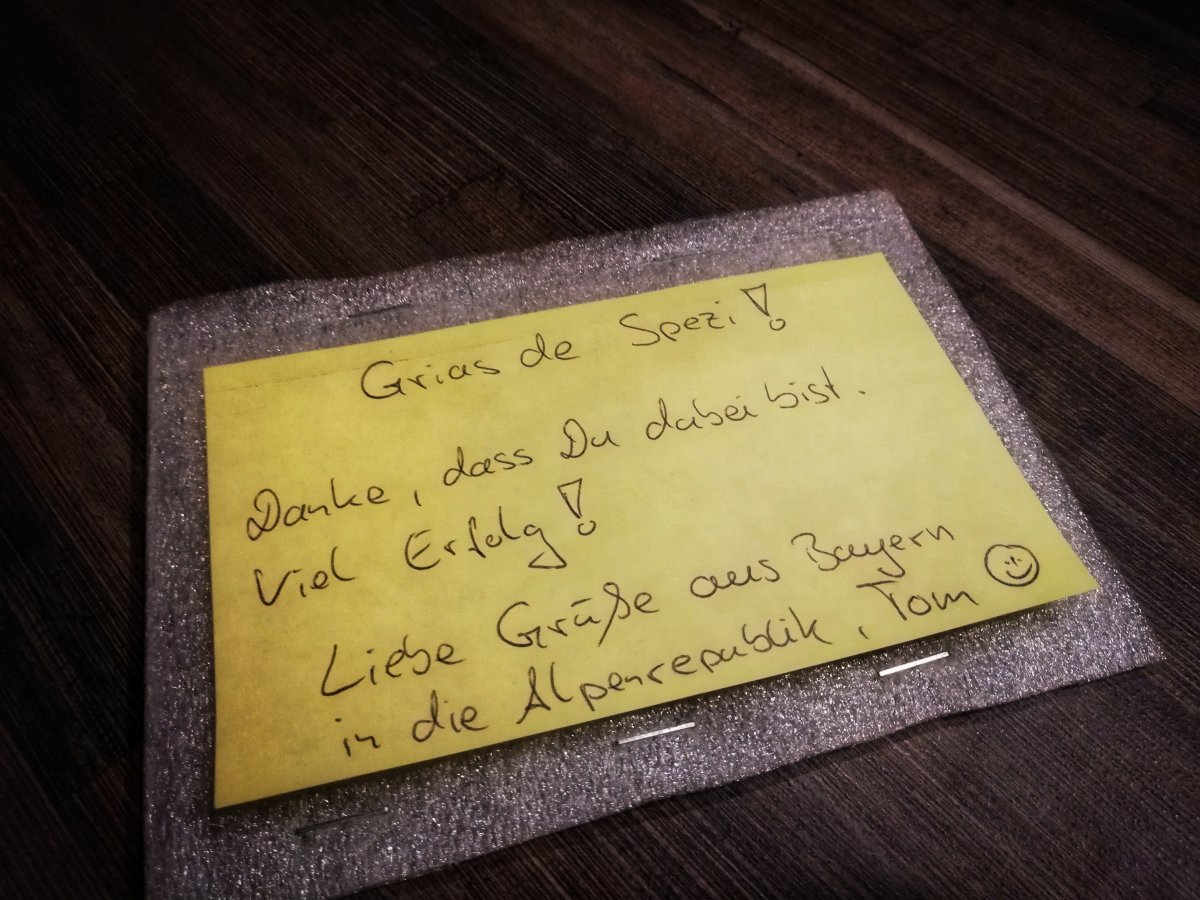 Grias de Spezi!
Danke, dass Du dabei bist.
Viel Erfolg!
Liebe Grüße aus Bayern
in die Alpenrepublik, Tom